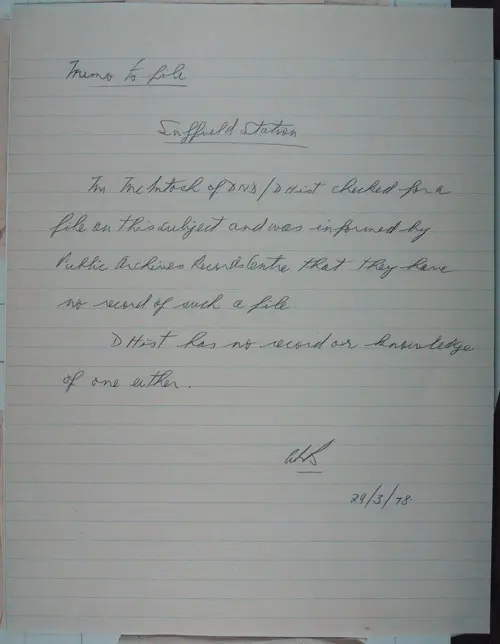 Memo to file
Suffield Station
Mr. McIntosh of DND/DHist checked for a
file on this subject and was informed by
Public Archives Records Centre that they have
no record of such a file
DHist has no record or knowledge
of one either.
29/3/78